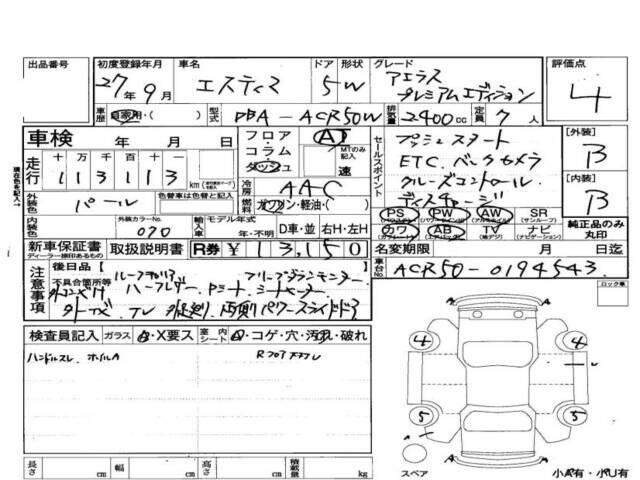 出品番号 初度登録年月 車名 ドア 形状 グレード 評価点
27年 9月 エスティマ 5 W アエラス プレミアムエディション 4
車歴 自家用・( ) 型式 DBA-ACR50W 排気量 2400cc 定員 7人
車検 年 月 日 フロア・コラム・ダッシュ AT MTのみ記入 速
セールスポイント プッシュスタート
ETC. バックカメラ
クルーズコントロール
ディスチャージ
[外装] B
[内装] B
走行 十 万 千 百 十 一
113113 km
冷房 AAC
外装色 パール 色替車は色替と記入 燃料 ガソリン・軽油・( )
内装色 外装カラーNo. 070 輸入車 モデル年式 年・不明 D車・並 右H・左H
PS PW AW SR (サンルーフ)
カワ AB TV ナビ (ナビゲーション)
純正品のみ丸印
新車保証書 ディーラー捺印あるもの 取扱説明書 R券 ¥ 3,150
名変期限 月 日迄
車台No. ACR50-0194543
注意事項 後日品 [ ]
不具合箇所等
外TVxf, TV
両側パワースライドドア
ロック車
検査員記入 ガラス A・X要ス 室内 シート A・コゲ・穴・汚れ・破れ
ハンドルスレ. ホイルA
4 4
5 5
長さ cm 幅 cm 高さ cm 積載量 kg
スペア 小A有・小U有